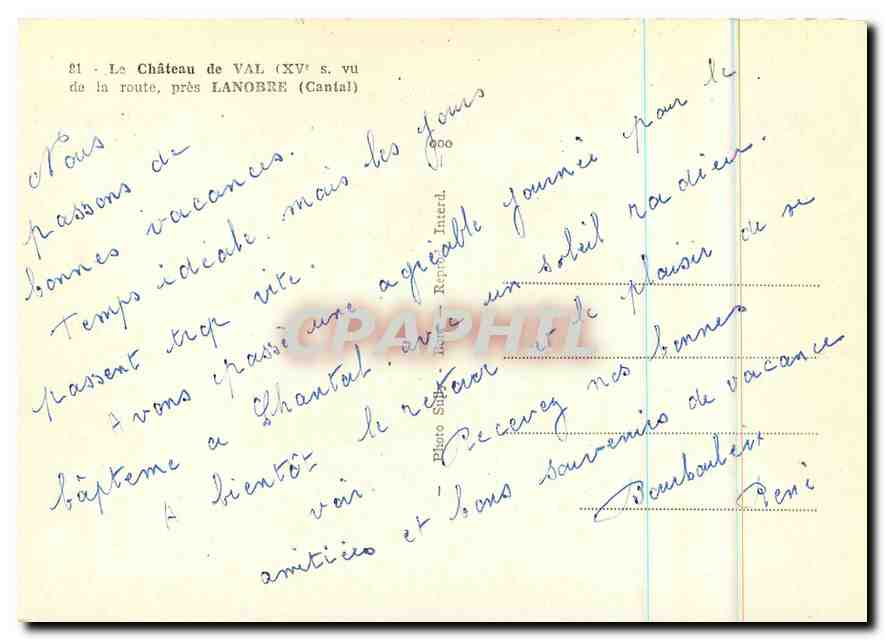 81 - Le Château de VAL (XVe s. vu
de la route, près LANOBRE (Cantal)
Nous
passons de
bonnes vacances.
Temps idéale. mais les jours
passent trop vite.
Avons passé une agréable journée pour le
bâpteme a Chantal. avec un soleil radieux.
A bientôt le retour et le plaisir de se
voir. Recevez nos bonnes
amitiées et bons souvenirs de vacance
René
Photo Suply - Repro. Interd.
CPAPHIL